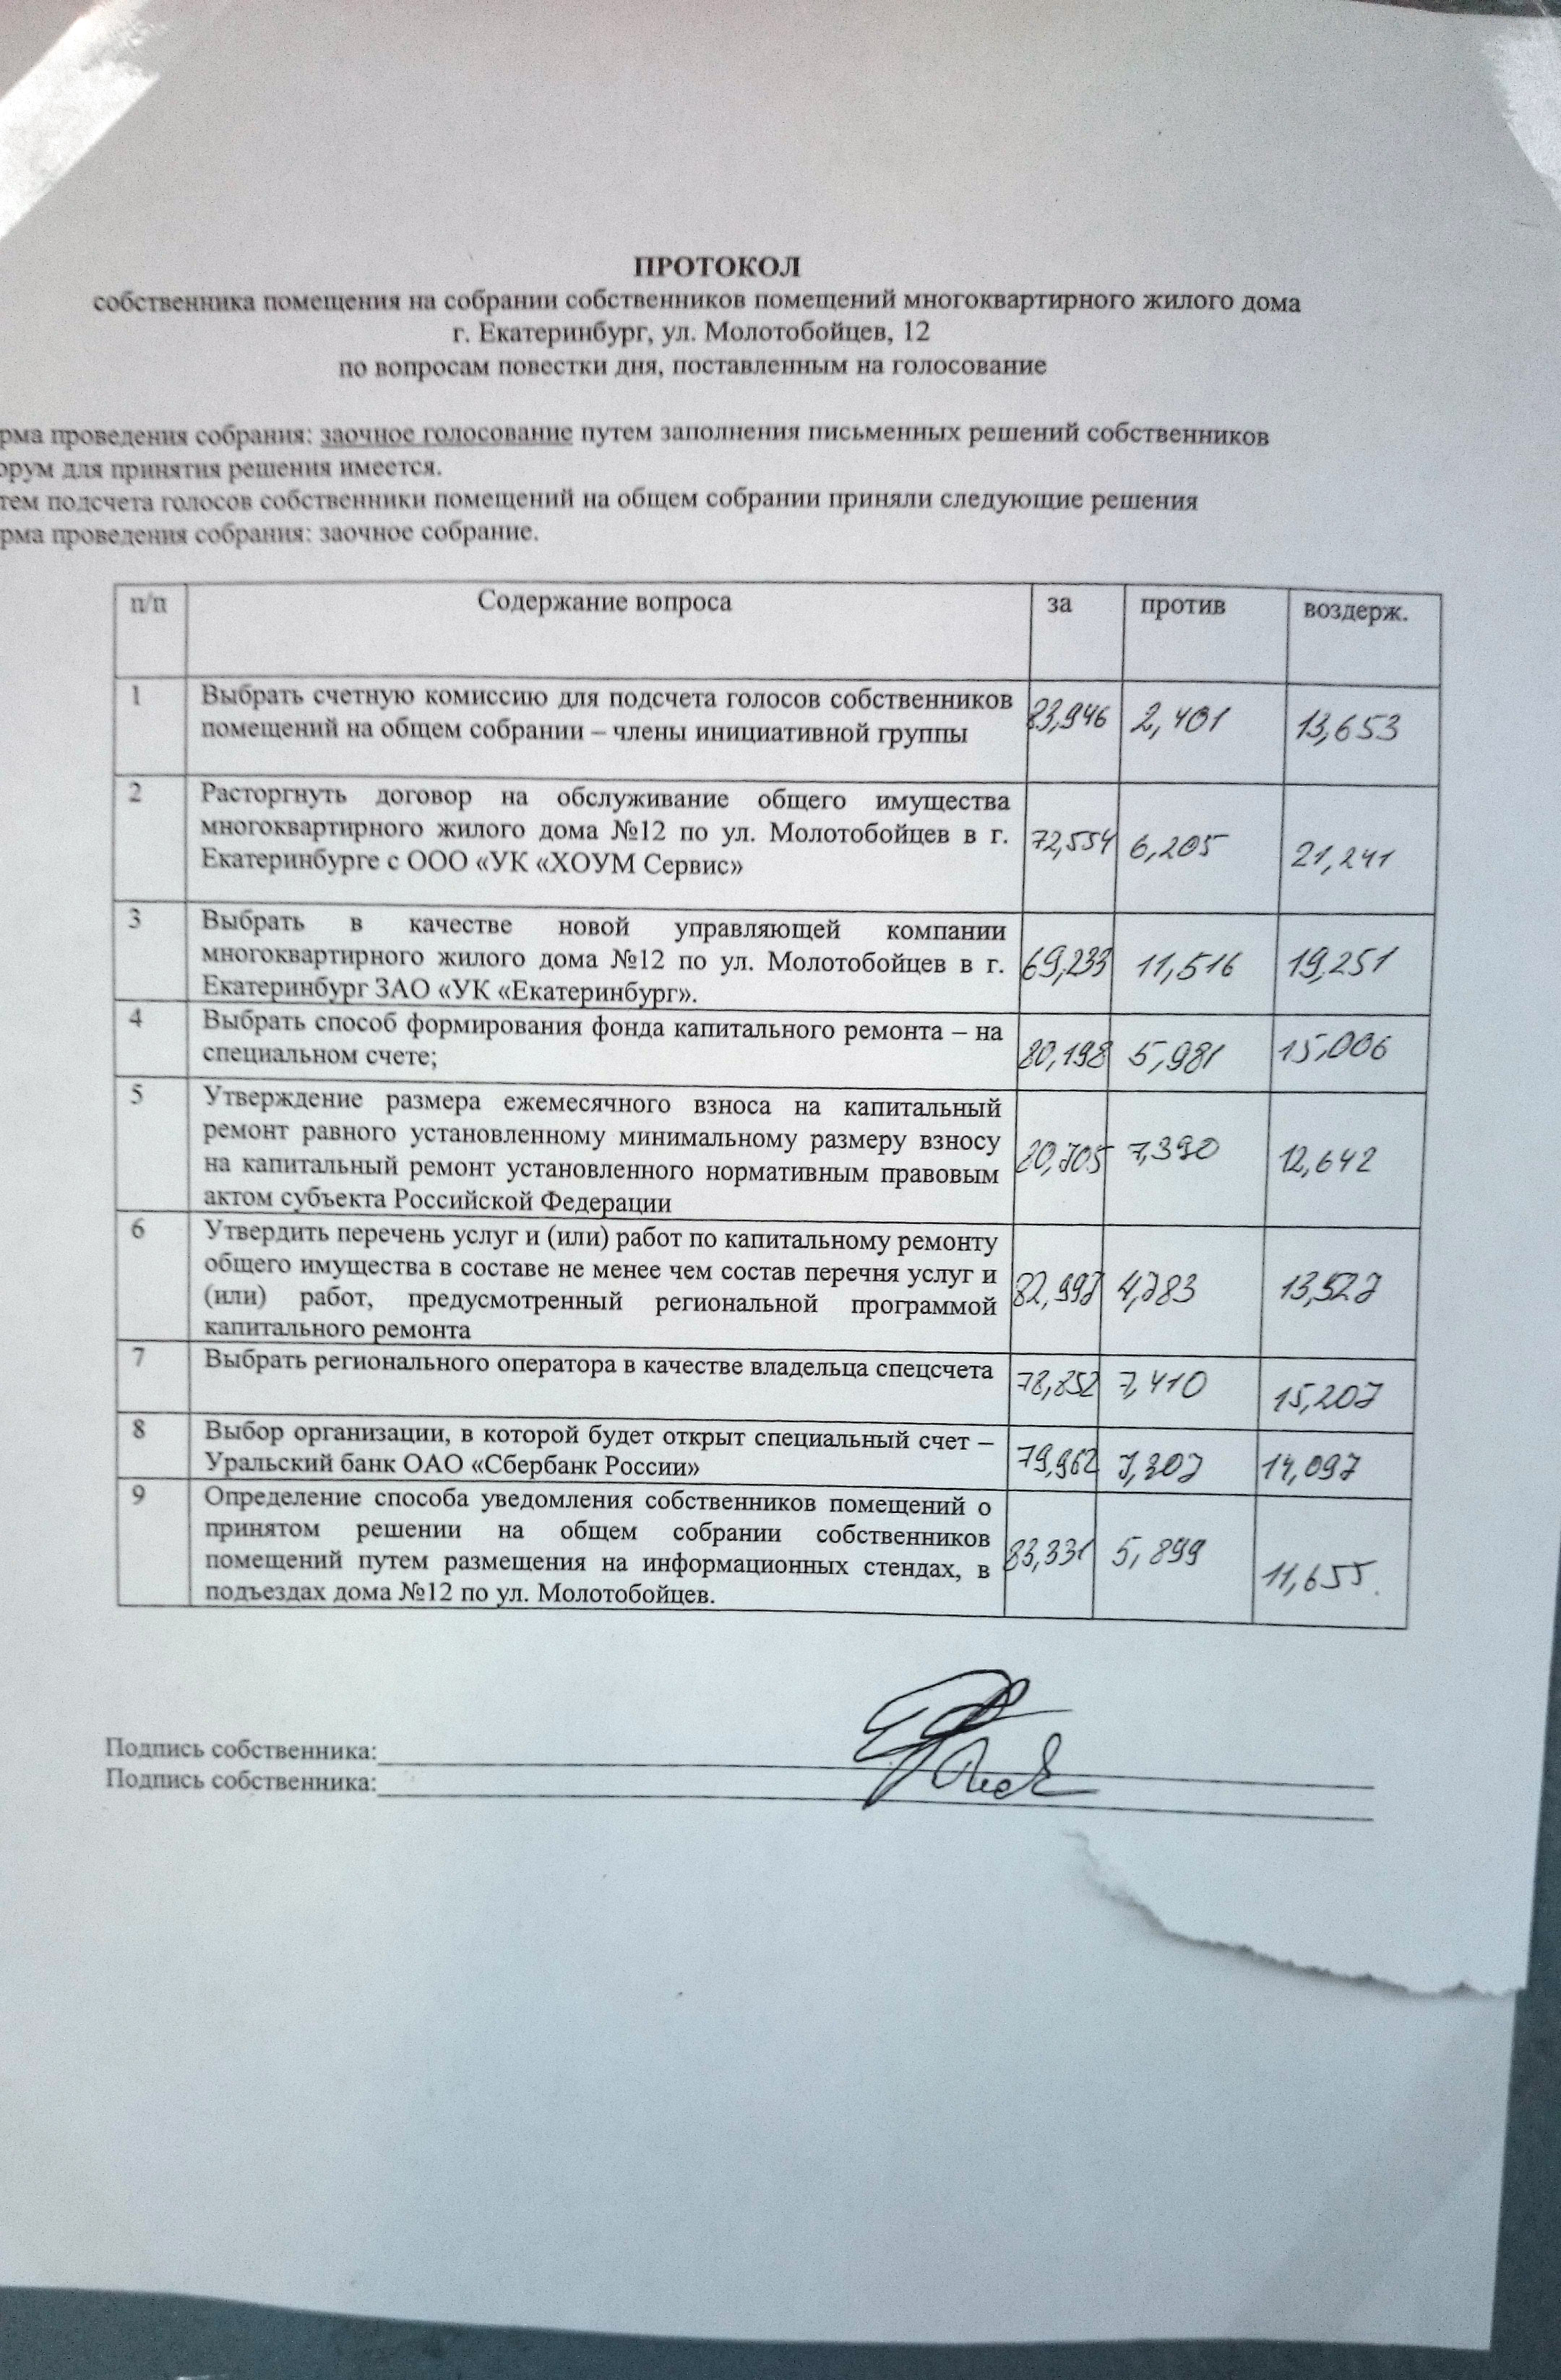 ПРОТОКОЛ
собственника помещения на собрании собственников помещений многоквартирного жилого дома
г. Екатеринбург, ул. Молотобойцев, 12
по вопросам повестки дня, поставленным на голосование
рма проведения собрания: заочное голосование путем заполнения письменных решений собственников
орум для принятия решения имеется.
тем подсчета голосов собственники помещений на общем собрании приняли следующие решения
рма проведения собрания: заочное собрание.
п/п Содержание вопроса за против воздерж.
1 Выбрать счетную комиссию для подсчета голосов собственников
помещений на общем собрании – члены инициативной группы
83,946 2,401 13,653
2 Расторгнуть договор на обслуживание общего имущества
многоквартирного жилого дома №12 по ул. Молотобойцев в г.
Екатеринбурге с ООО «УК «ХОУМ Сервис»
72,554 6,205 21,241
3 Выбрать в качестве новой управляющей компании
многоквартирного жилого дома №12 по ул. Молотобойцев в г.
Екатеринбург ЗАО «УК «Екатеринбург».
69,233 11,516 19,251
4 Выбрать способ формирования фонда капитального ремонта – на
специальном счете;
80,198 5,981 15,006
5 Утверждение размера ежемесячного взноса на капитальный
ремонт равного установленному минимальному размеру взносу
на капитальный ремонт установленного нормативным правовым
актом субъекта Российской Федерации
80,705 7,390 12,642
6 Утвердить перечень услуг и (или) работ по капитальному ремонту
общего имущества в составе не менее чем состав перечня услуг и
(или) работ, предусмотренный региональной программой
капитального ремонта
82,997 4,783 13,527
7 Выбрать регионального оператора в качестве владельца спецсчета
78,852 7,410 15,207
8 Выбор организации, в которой будет открыт специальный счет –
Уральский банк ОАО «Сбербанк России»
79,962 7,307 14,097
9 Определение способа уведомления собственников помещений о
принятом решении на общем собрании собственников
помещений путем размещения на информационных стендах, в
подъездах дома №12 по ул. Молотобойцев.
83,331 5,899 11,655.
Подпись собственника:
Подпись собственника: